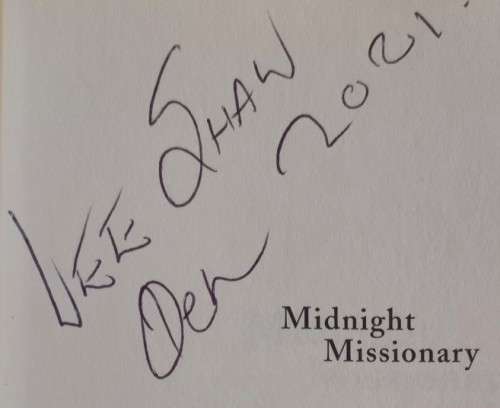 VEE SHAW
2021.
Midnight
Missionary